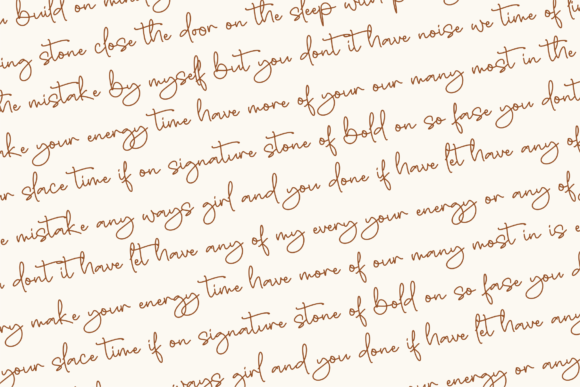 build on
ing stone close the door on the sleep with
the mistake by myself but you dont it have noise we time of
ake your energy time have more of your our many most in the
ur slace time if on signature stone of bold on so fase you dont
e mistake any ways girl and you done if have let have any of
dont it have let have any of my every your energy or any of
ry make your energy time have more of our many most in is e
your slace time if on signature stone of bold on so fase you d
ways girl and you done if have let have any
our many most in
your energy or any